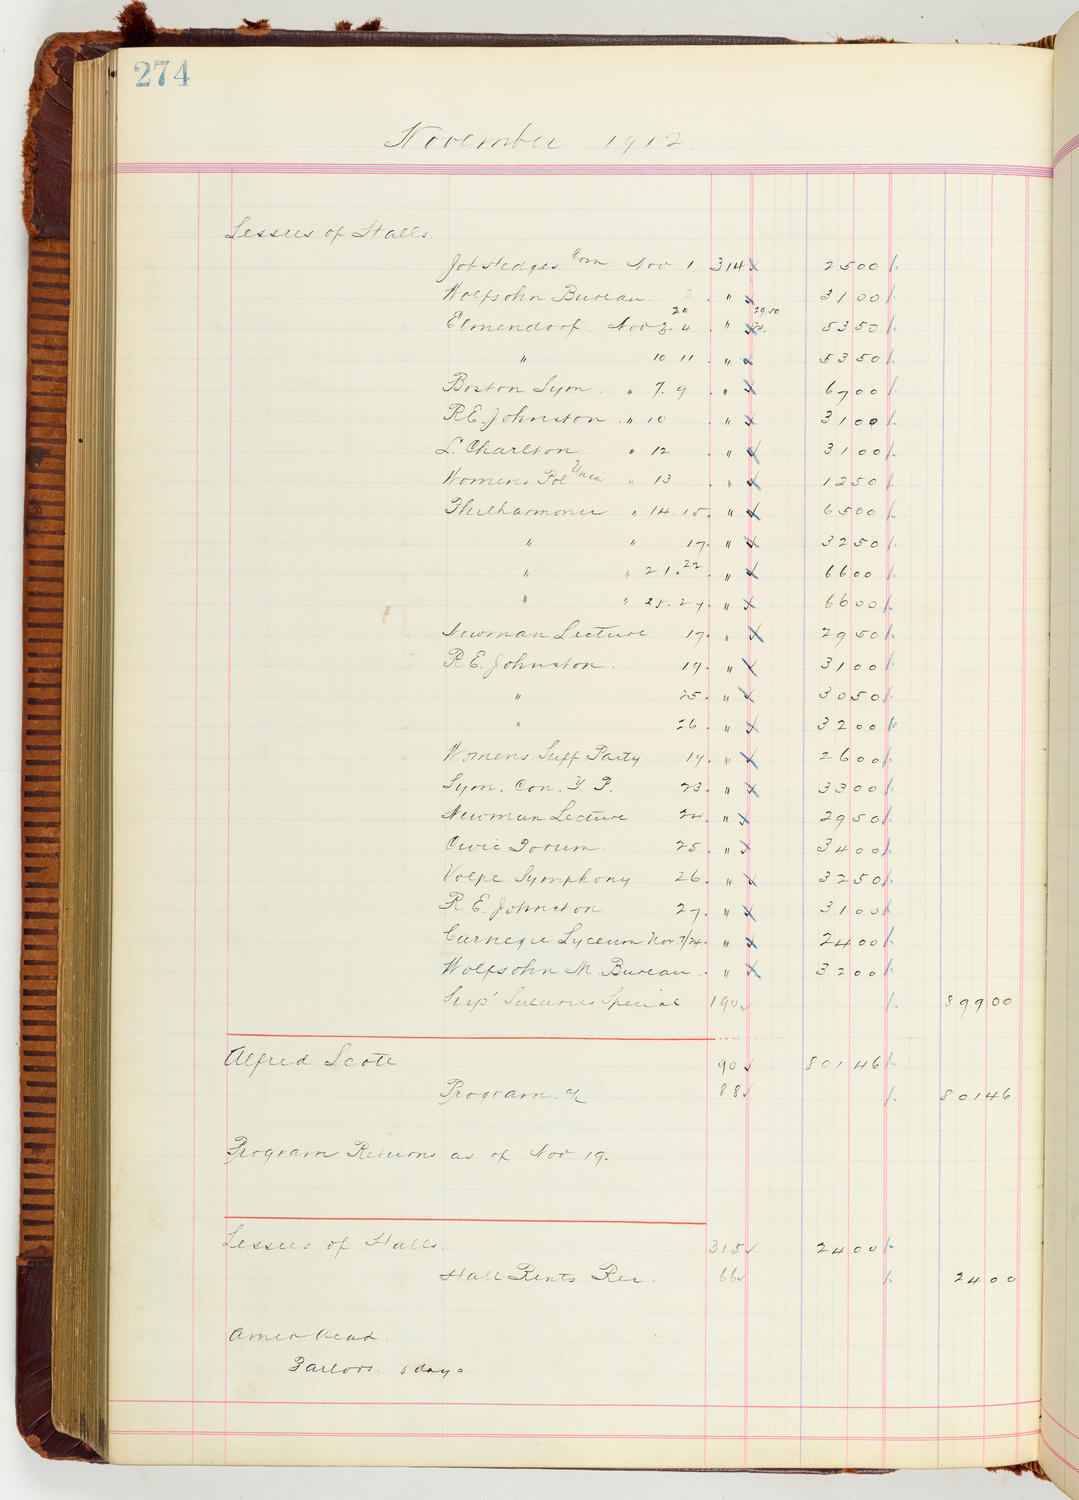 274
November 1912.
Lessees of Halls.
Job Hedges. Com. Nov 1. 314 2500
Wolfsohn Bureau. 2 . " 3100
28 29.50
Elmendorf. Nov 3- 4 . " 24. 5350
" 10 11 . " 5350
Boston Sym. " 7. 9 . " 6700
R.E. Johnston. " 10 " 3100
L. Charlton " 12 " 3100
Womens Pol Union " 13 . " 1250
Philharmonic " 14. 15. " 6500
" " 17. " 3250
" " 21. 22 . " 6600
" " 25. 27. " 6600
Newman Lecture 17. " 2950
R.E. Johnston. 19. " 3100
" 25. " 3050
" 26. " 3200
Womens Suff Party. 19. " 2600
Sym. Con. Y P. 23. " 3300
Newman Lecture 24. " 2950
Civic Forum. 25. " 3400
Volpe Symphony 26. " 3250
R E. Johnston 27. " 3100
Carnegie Lyceum Nov. 3/24. " 2400
Wolfsohn M. Bureau. . " 3200
Sup' Salaries Special 190 89900
Alfred Scott 90 80146
Program. a/c 88 80146
Program Returns as of Nov 19.
Lessees of Halls. 315 2400
Hall Rents Rec. 66 2400
Amer Acad.
Parlors. 8 days